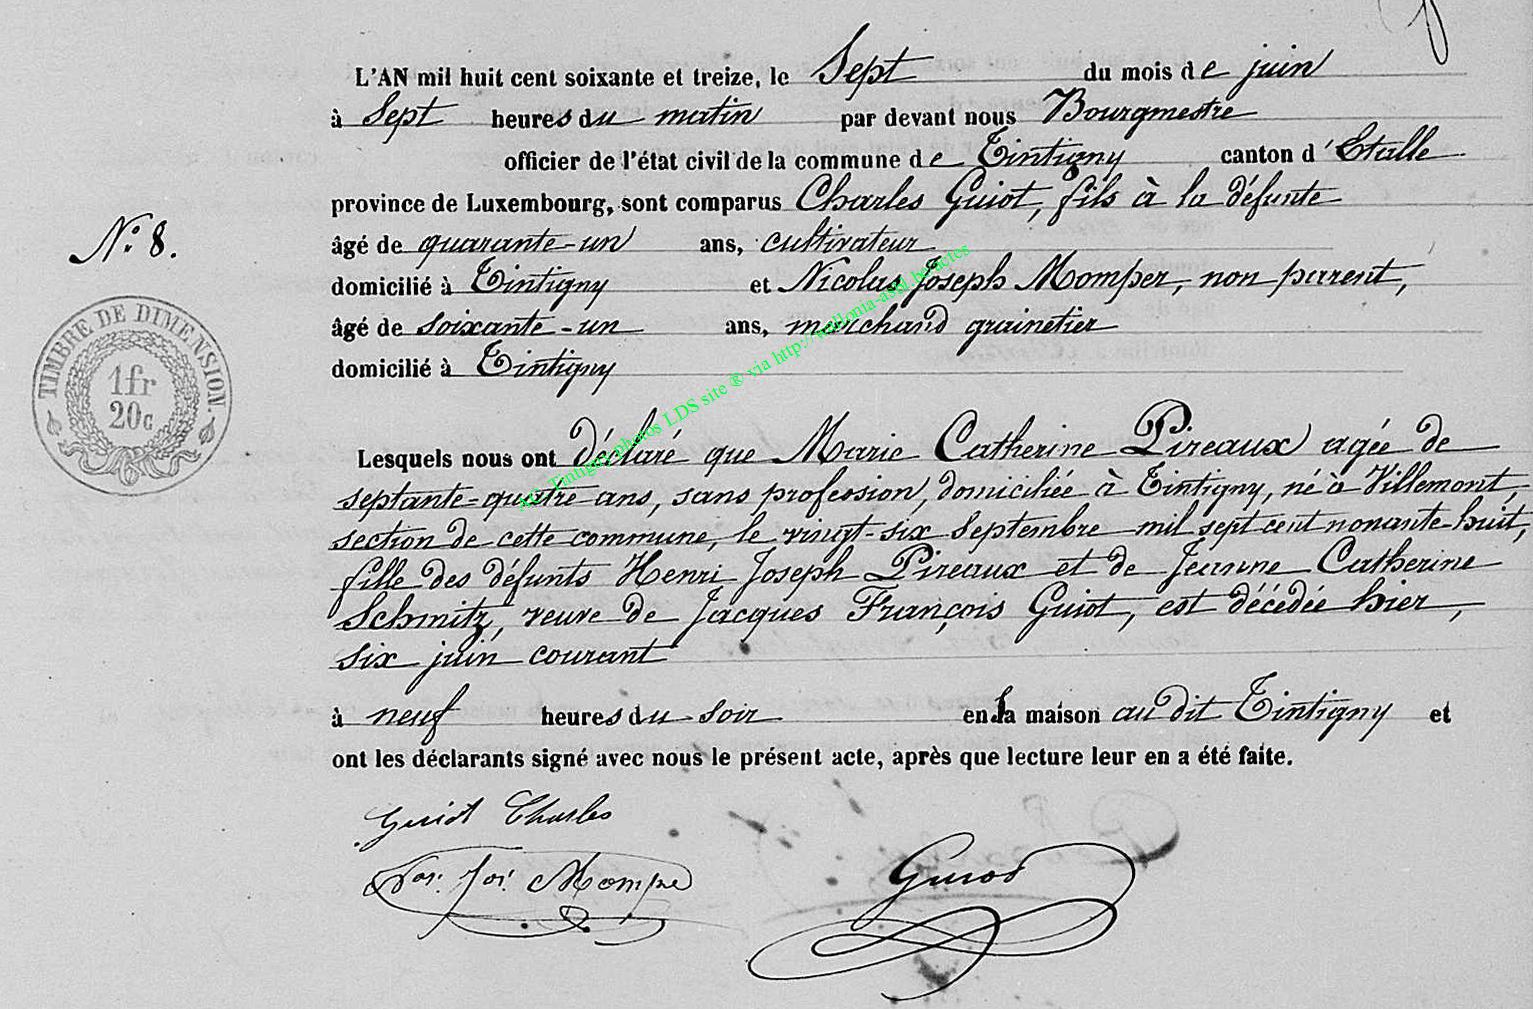 L'AN mil huit cent soixante et treize, le Sept du mois de juin
à Sept heures du matin par devant nous Bourgmestre
officier de l'état civil de la commune de Tintigny canton d'Etalle
province de Luxembourg, sont comparus Charles Guiot, fils à la défunte
N.o 8.
âgé de quarante-un ans, cultivateur
domicilié à Tintigny et Nicolas Joseph Momper, non parent,
âgé de soixante-un ans, marchand grainetier
domicilié à Tintigny
TIMBRE DE DIMENSION.
1fr
20c
Tintigny photos LDS site ® via http://wallonia-asbl.be/actes
Lesquels nous ont déclaré que Marie Catherine Pireaux agée de
septante-quatre ans, sans profession, domiciliée à Tintigny, né à Villemont,
section de cette commune, le vingt-six Septembre mil sept cent nonante-huit,
fille des défunts Henri Joseph Pireaux et de Jeanne Catherine
Schmitz, veuve de Jacques François Guiot, est décédée hier,
six juin courant
à neuf heures du soir en la maison au dit Tintigny et
ont les déclarants signé avec nous le présent acte, après que lecture leur en a été faite.
Guiot Charles
Jos. Mompre
Guiot